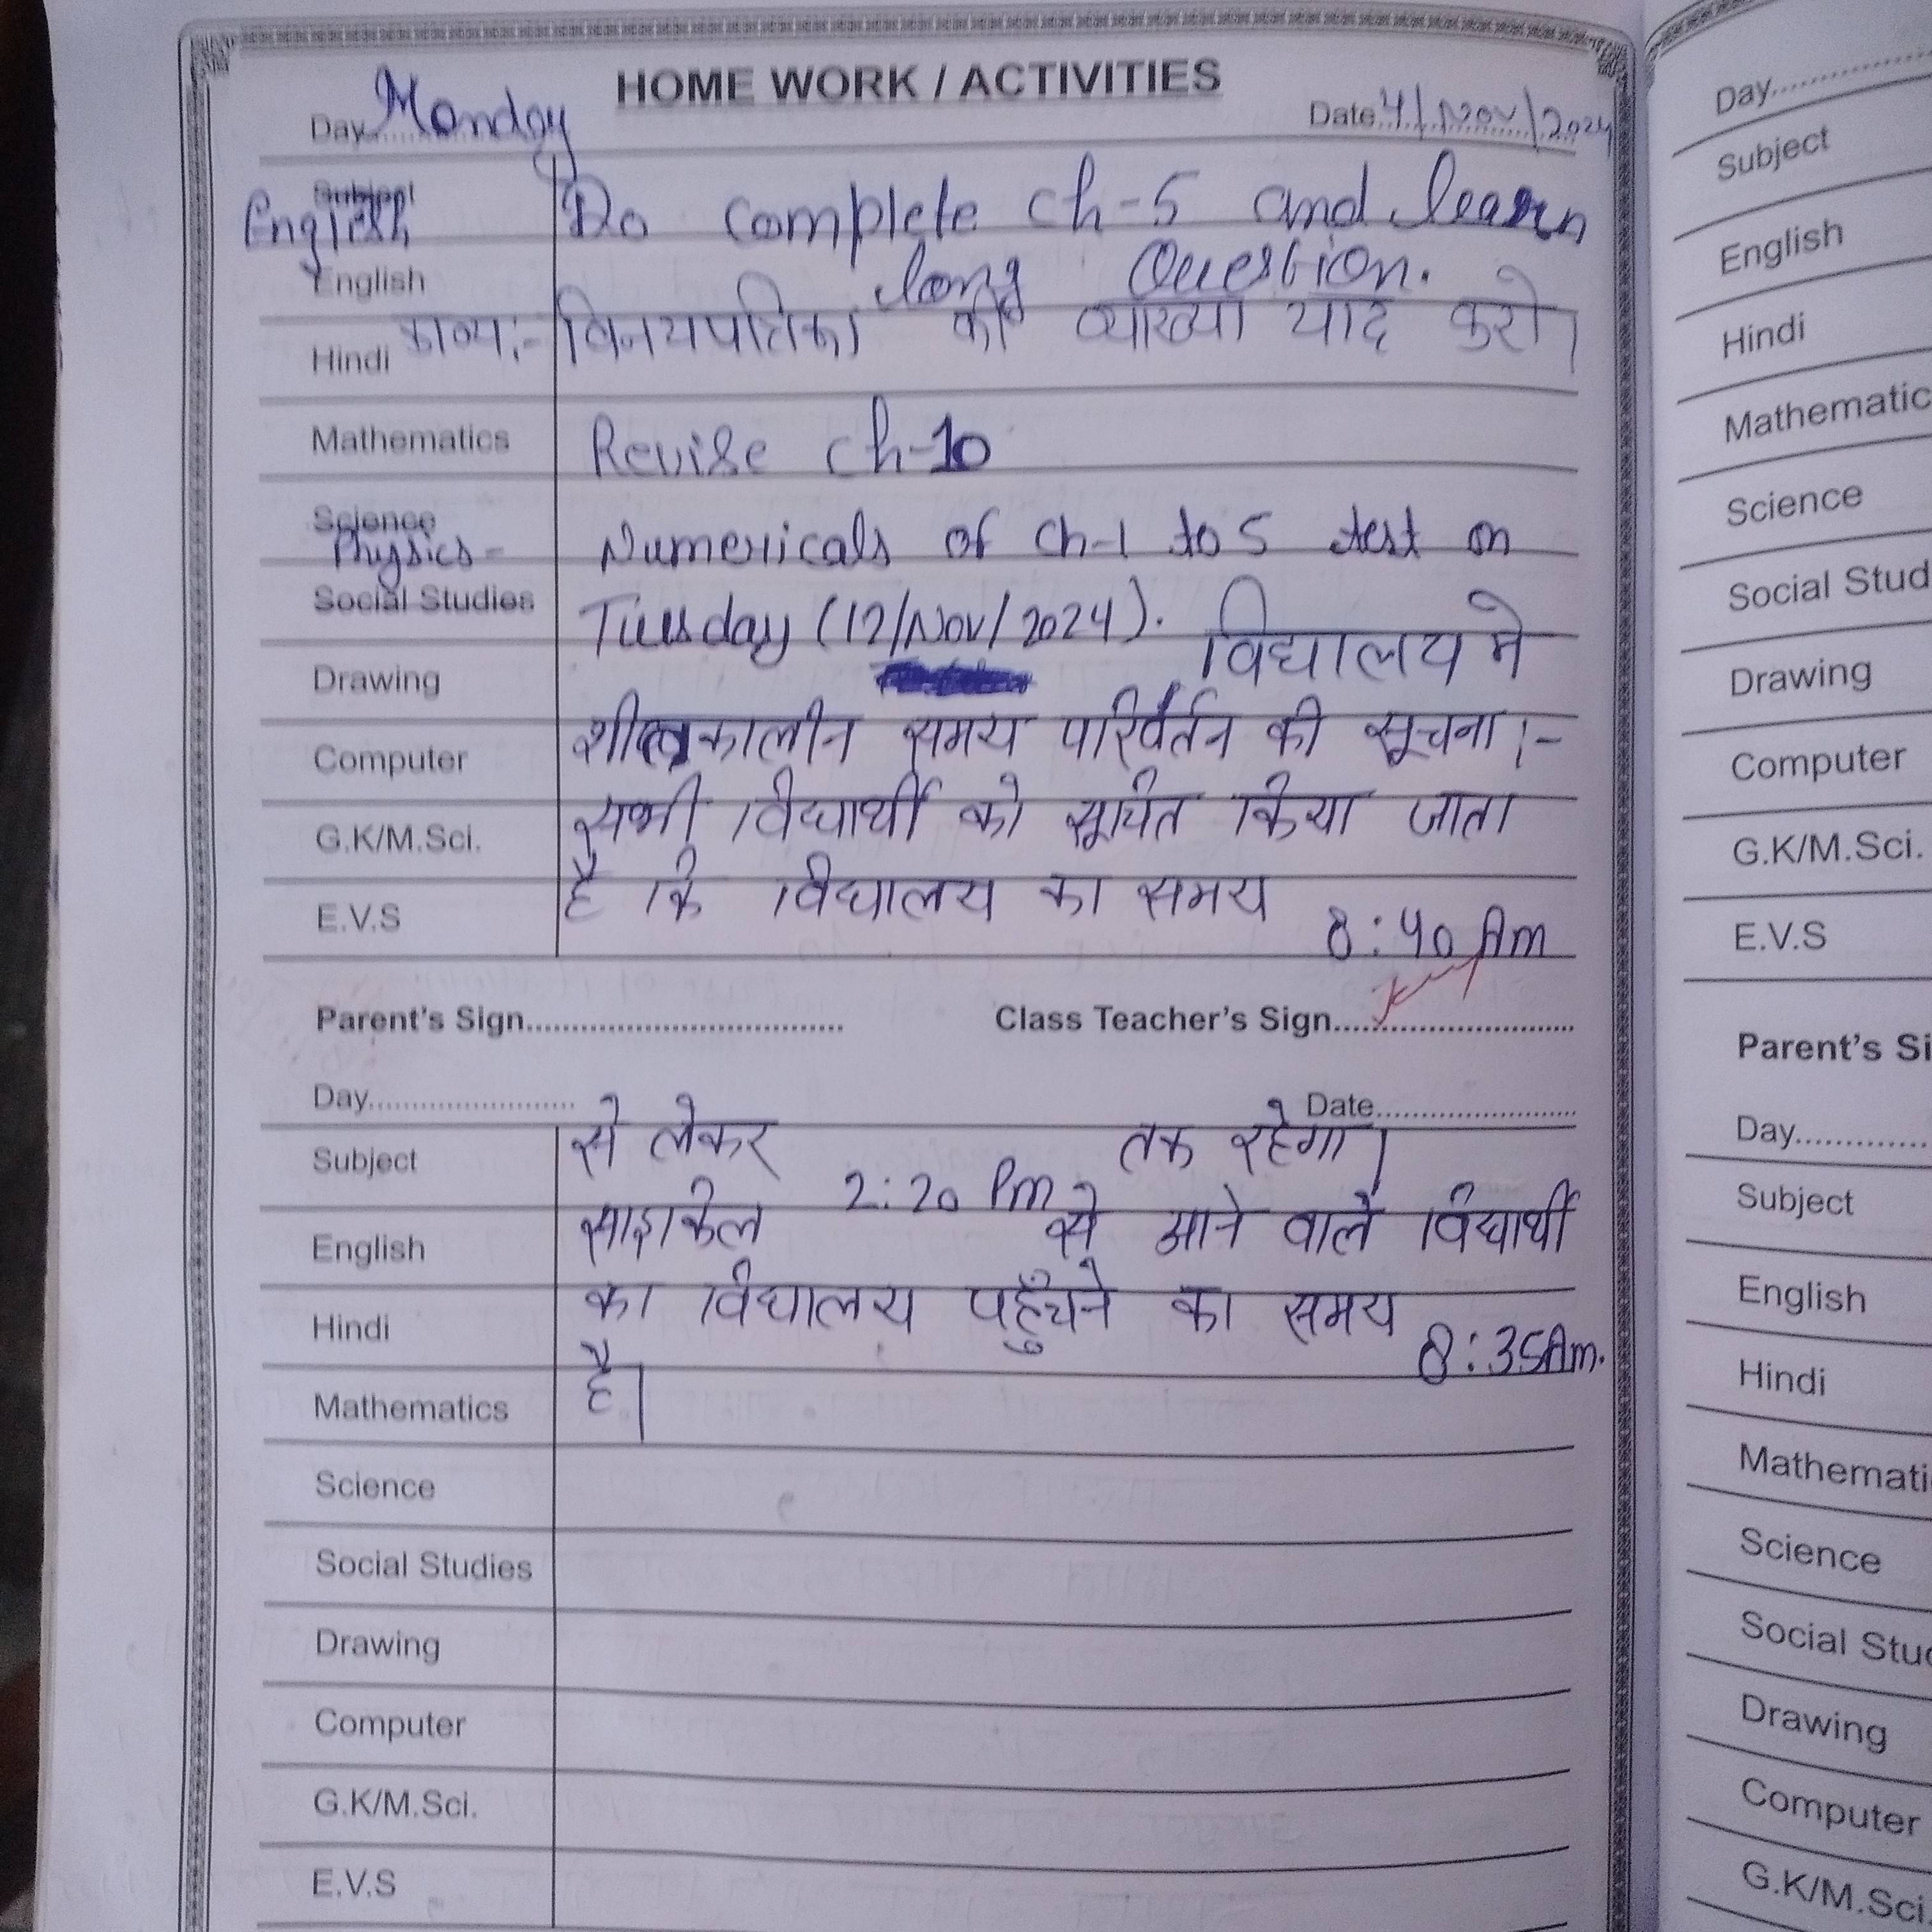 HOME WORK / ACTIVITIES
Day Monday Date 4/Nov/2024
Subject
English Do complete ch-5 and learn
English long Question.
Hindi काव्य:- विनयपत्रिका की व्याख्या याद करो।
Mathematics Revise ch-10
Science
Physics- Numericals of ch-1 to 5 test on
Social Studies Tuesday (12/Nov/2024).
Drawing विद्यालय मे
Computer शीतकालीन समय परिवर्तन की सूचना :-
G.K/M.Sci. सभी विद्यार्थी को सूचित किया जाता
E.V.S है कि विद्यालय का समय 8:40 Am
Parent's Sign Class Teacher's Sign
Day Date
Subject से लेकर 2:20 Pm तक रहेगा।
English साइकिल से आने वाले विद्यार्थी
Hindi का विद्यालय पहुँचने का समय 8:35Am.
Mathematics है।
Science
Social Studies
Drawing
Computer
G.K/M.Sci.
E.V.S
Day
Subject
English
Hindi
Mathematic
Science
Social Stud
Drawing
Computer
G.K/M.Sci.
E.V.S
Parent's Si
Day
Subject
English
Hindi
Mathemati
Science
Social Stu
Drawing
Computer
G.K/M.Sci.